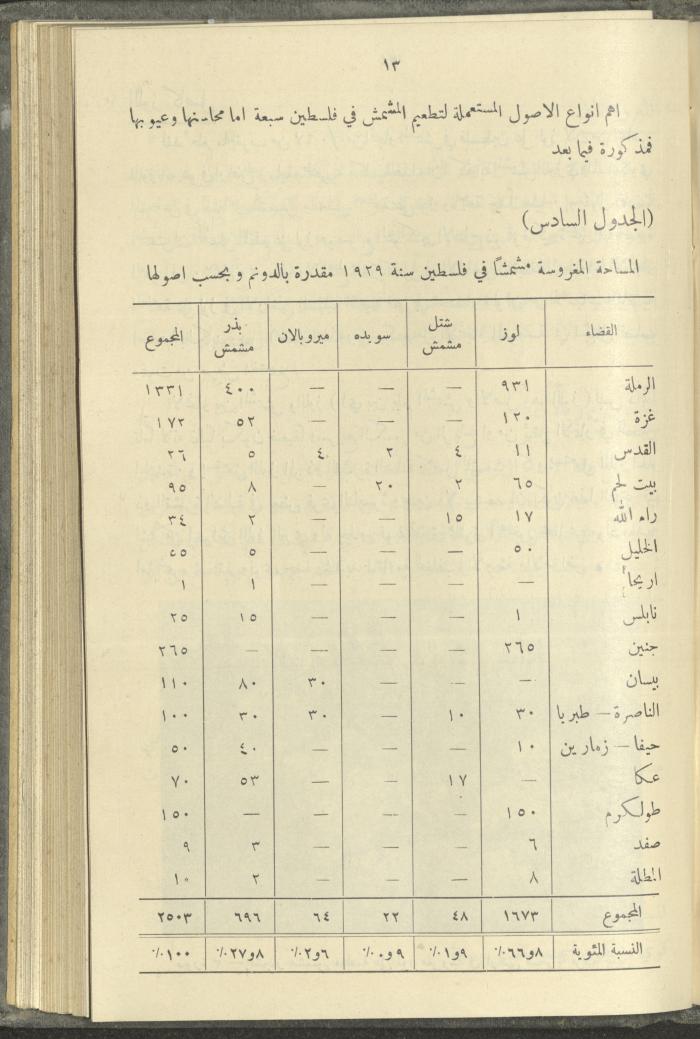 ١٣
اهم انواع الاصول المستعملة لتطعيم المشمش في فلسطين سبعة اما محاسنها وعيوبها
فمذكورة فيما بعد
(الجدول السادس)
المساحة المغروسة مشمشاً في فلسطين سنة ١٩٢٩ مقدرة بالدونم وبحسب اصولها
القضاء لوز شتل مشمش سويده ميروبالان بذر مشمش المجموع
الرملة ٩٣١ — — — ٤٠٠ ١٣٣١
غزة ١٢٠ — — — ٥٢ ١٧٢
القدس ١١ ٤ ٢ ٤ ٥ ٢٦
بيت لحم ٦٥ ٢ ٢٠ — ٨ ٩٥
رام الله ١٧ ١٥ — — ٢ ٣٤
الخليل ٥٠ — — — ٥ ٤٥
اريحا — — — — ١ ١
نابلس ١ — — — ١٥ ٢٥
جنين ٢٦٥ — — — — ٢٦٥
بيسان — — — ٣٠ ٨٠ ١١٠
الناصرة — طبريا ٣٠ ١٠ — ٣٠ ٣٠ ١٠٠
حيفا — زمارين ١٠ — — — ٤٠ ٥٠
عكا — ١٧ — — ٥٣ ٧٠
طولكرم ١٥٠ — — — — ١٥٠
صفد ٦ — — — ٣ ٩
المطلة ٨ — — — ٢ ١٠
المجموع ١٦٧٣ ٤٨ ٢٢ ٦٤ ٦٩٦ ٢٥٠٣
النسبة المئوية ٨و٦٦٪ ٩و١٪ ٩و٠٪ ٦و٢٪ ٨و٢٧٪ ١٠٠٪